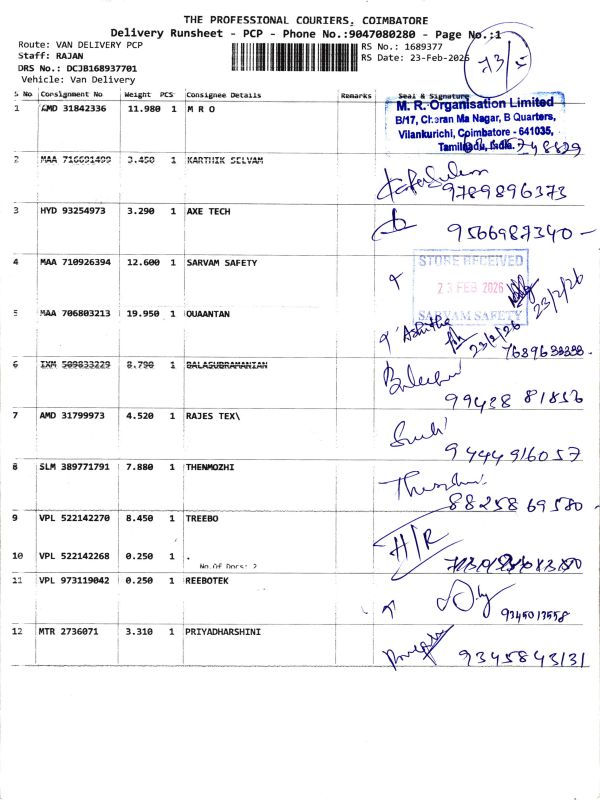 THE PROFESSIONAL COURIERS, COIMBATORE
Delivery Runsheet - PCP - Phone No.:9047080280 - Page No.:1
Route: VAN DELIVERY PCP
RS No.: 1689377
Staff: RAJAN
RS Date: 23-Feb-2026
DRS No.: DCJB168937701
Vehicle: Van Delivery
S No Consignment No Weight PCS Consignee Details Remarks Seal & Signature
1 AMD 31842336 11.980 1 M R O
M. R. Organisation Limited
B/17, Cheran Ma Nagar, B Quarters,
Vilankurichi, Coimbatore - 641035,
Tamilnadu, India.
2 MAA 716691499 3.450 1 KARTHIK SELVAM
9789896373
3 HYD 93254973 3.290 1 AXE TECH
9566987340 -
4 MAA 710926394 12.600 1 SARVAM SAFETY
STORE RECEIVED
23 FEB 2026
SARVAM SAFETY
23/2/26
5 MAA 706803213 19.950 1 OUAANTAN
Ashitha
23/2/26
6 IXM 509833229 8.790 1 BALASUBRAMANIAN
99438 81856
7 AMD 31799973 4.520 1 RAJES TEX\
9444916057
8 SLM 389771791 7.880 1 THENMOZHI
88258 69580 -
9 VPL 522142270 8.450 1 TREEBO
H/R
10 VPL 522142268 0.250 1 .
No.Of Docs: 2
11 VPL 973119042 0.250 1 REEBOTEK
9345013558
12 MTR 2736071 3.310 1 PRIYADHARSHINI
9345843131